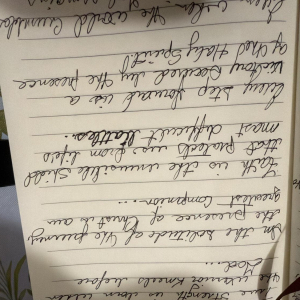 True strength is born when
the warrior kneels before
God...
In the solitude of the journey,
the presence of Christ is our
greatest companion...
Faith is the invisible shield
that protects us from life's
most difficult battles...
Every step forward is a
victory by the presence
of the Holy Spirit!
Even when the world crumbles